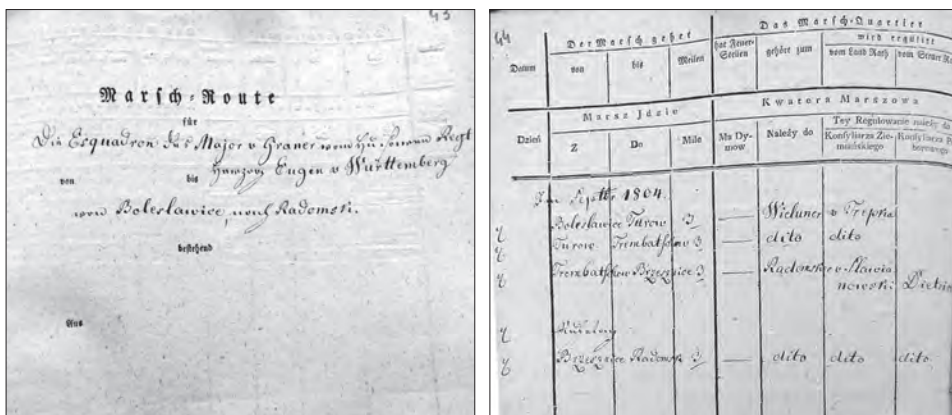 43
Marsch-Route
für
Die Esquadron des Major v Graner vom Husaren Regt
von bis Herzog Eugen v Württemberg
von Boleslawice nach Radomsk.
bestehend
Aus
44
Der Marsch gehet Das Marsch-Quartier
wird regulirt
Datum von bis Meilen hat Feuer-Stellen gehört zum vom Land Rath vom Steuer Ra
Marsz Jdzie Kwatera Marszowa
Tey Regulowanie należy
Dzień Z Do Mile Ma Dymow Należy do Konsyliarza Ziemiańskiego Konsyliarza P
borowego
Im 1804.
Boleslawice Turow 3 — Wieluner v Trepka
Turow Trembatschow 3 — dito dito
Trembatschow Brzeznice 3 — Radomsker v Slawianowski Dietri
Ruhetag
Brzeznice Radomsk 3 — dito dito dito